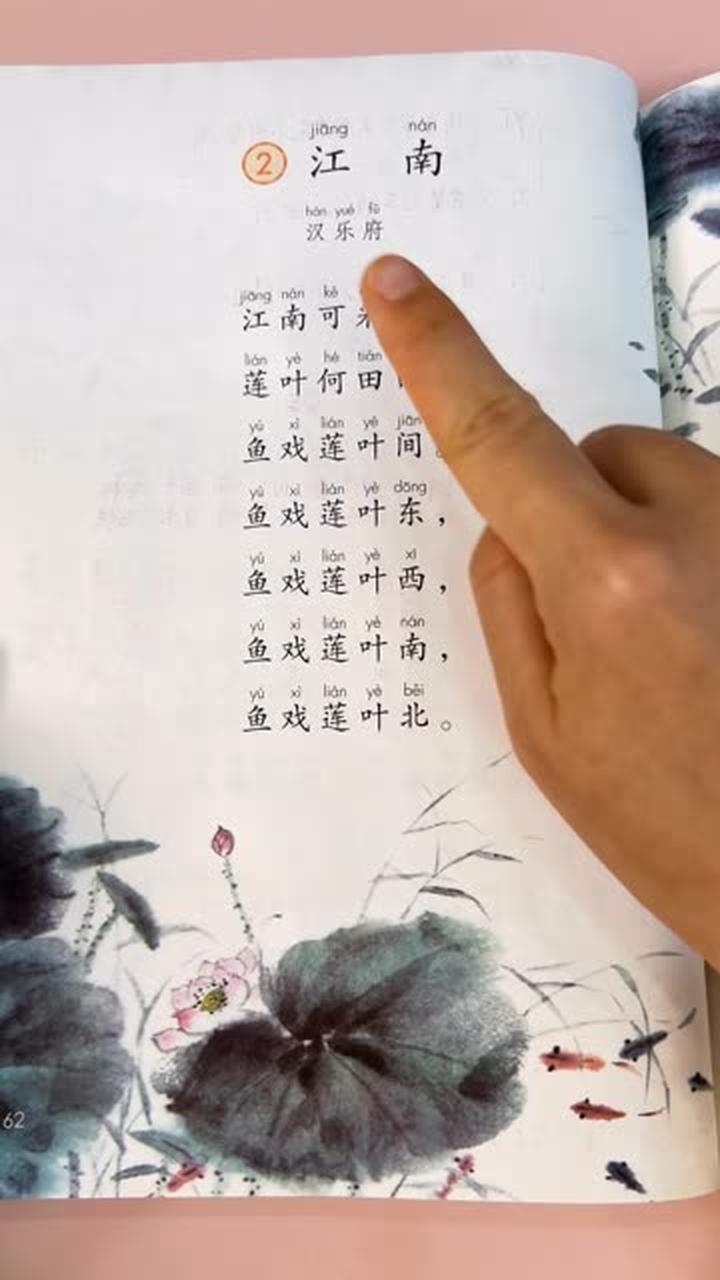 jiāng nán
② 江 南
hàn yuè fǔ
汉乐府
jiāng nán kě
江南可采
lián yè hé tián
莲叶何田
yú xì lián yè jiān
鱼戏莲叶间。
yú xì lián yè dōng
鱼戏莲叶东，
yú xì lián yè xī
鱼戏莲叶西，
yú xì lián yè nán
鱼戏莲叶南，
yú xì lián yè běi
鱼戏莲叶北。
62